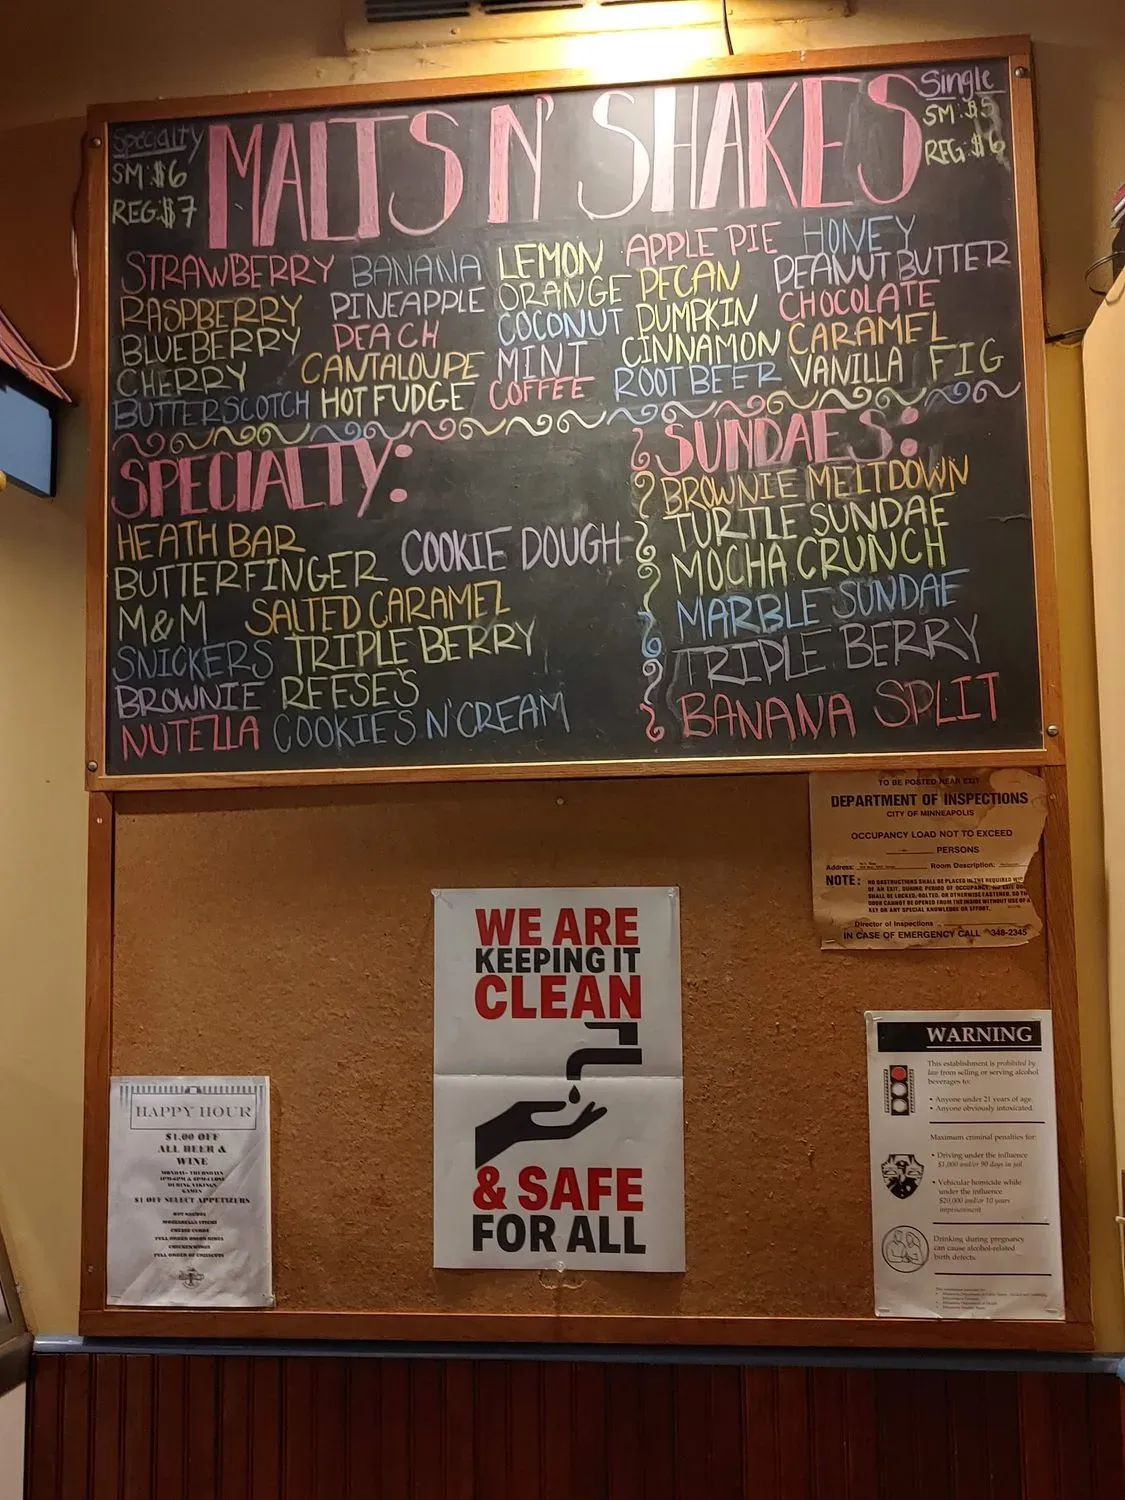 Specialty
SM: $6
REG: $7
MALTS N' SHAKES
Single
SM: $5
REG: $6
STRAWBERRY BANANA LEMON APPLE PIE HONEY
RASPBERRY PINEAPPLE ORANGE PECAN PEANUT BUTTER
BLUEBERRY PEACH COCONUT PUMPKIN CHOCOLATE
CHERRY CANTALOUPE MINT CINNAMON CARAMEL
BUTTERSCOTCH HOT FUDGE COFFEE ROOT BEER VANILLA FIG
SPECIALTY:
HEATH BAR
BUTTERFINGER COOKIE DOUGH
M&M SALTED CARAMEL
SNICKERS TRIPLE BERRY
BROWNIE REESE'S
NUTELLA COOKIES N' CREAM
SUNDAES:
BROWNIE MELTDOWN
TURTLE SUNDAE
MOCHA CRUNCH
MARBLE SUNDAE
TRIPLE BERRY
BANANA SPLIT
TO BE POSTED NEAR EXIT
DEPARTMENT OF INSPECTIONS
CITY OF MINNEAPOLIS
OCCUPANCY LOAD NOT TO EXCEED
PERSONS
Address: Room Description:
NOTE: NO OBSTRUCTIONS SHALL BE PLACED IN THE REQUIRED
OF AN EXIT, DURING PERIOD OF OCCUPANCY,
SHALL BE LOCKED, BOLTED, OR OTHERWISE FASTENED, SO
DOOR CANNOT BE OPENED FROM THE INSIDE WITHOUT USE OF A
KEY OR ANY SPECIAL KNOWLEDGE OR EFFORT.
Director of Inspections
IN CASE OF EMERGENCY CALL 348-2345
WE ARE
KEEPING IT
CLEAN
& SAFE
FOR ALL
HAPPY HOUR
$1.00 OFF
ALL BEER &
WINE
MONDAY- THURSDAYS
DURING VIKINGS
GAMES
$1 OFF SELECT APPETIZERS
MOZZARELLA STICKS
CHEESE CURDS
FULL ORDER ONION RINGS
CHICKEN WINGS
WARNING
This establishment is prohibited by
law from selling or serving alcohol
beverages to:
• Anyone under 21 years of age.
• Anyone obviously intoxicated.
Maximum criminal penalties for:
• Driving under the influence
$1,000 and/or 90 days in jail
• Vehicular homicide while
under the influence
$20,000 and/or 10 years
imprisonment
Drinking during pregnancy
can cause alcohol-related
birth defects.